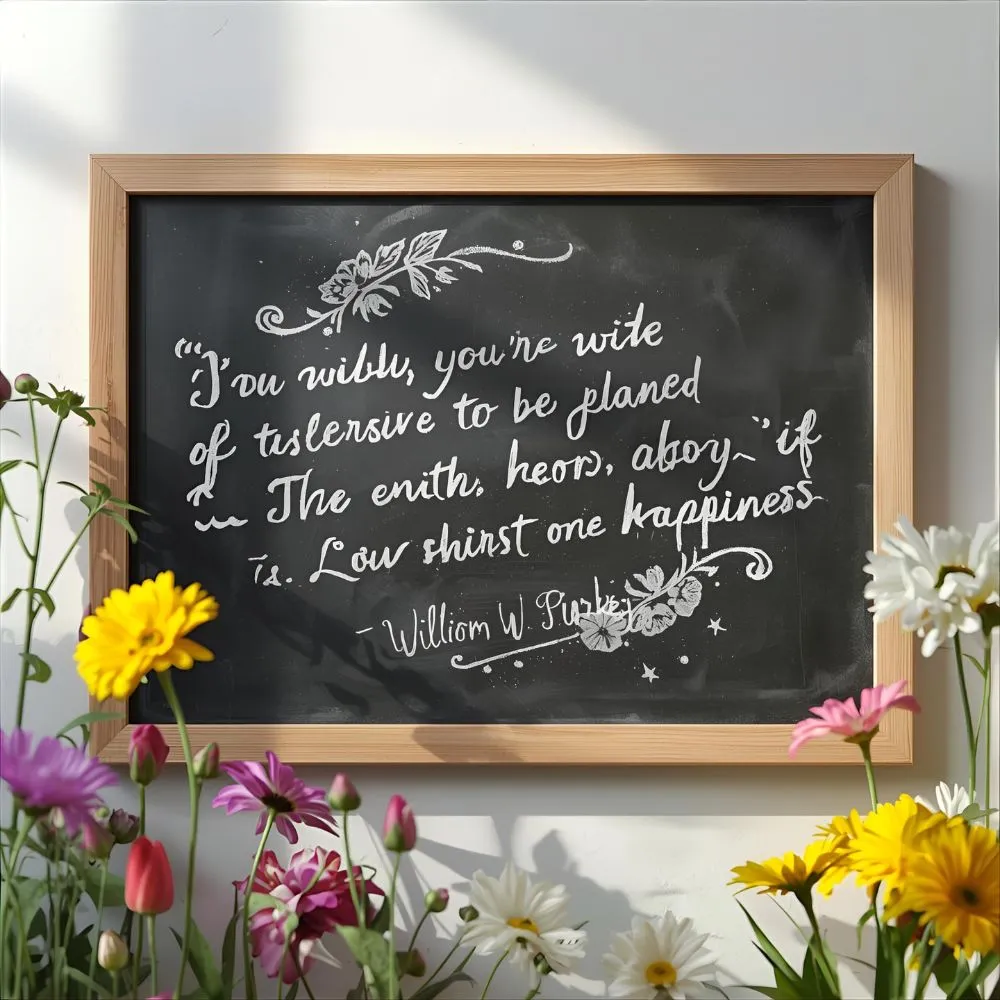 "You wiblu, you're wite
of tislersive to be planed
The enith. heors, aboy~" if
Is. Low shinst one happiness
- William W. Purkey